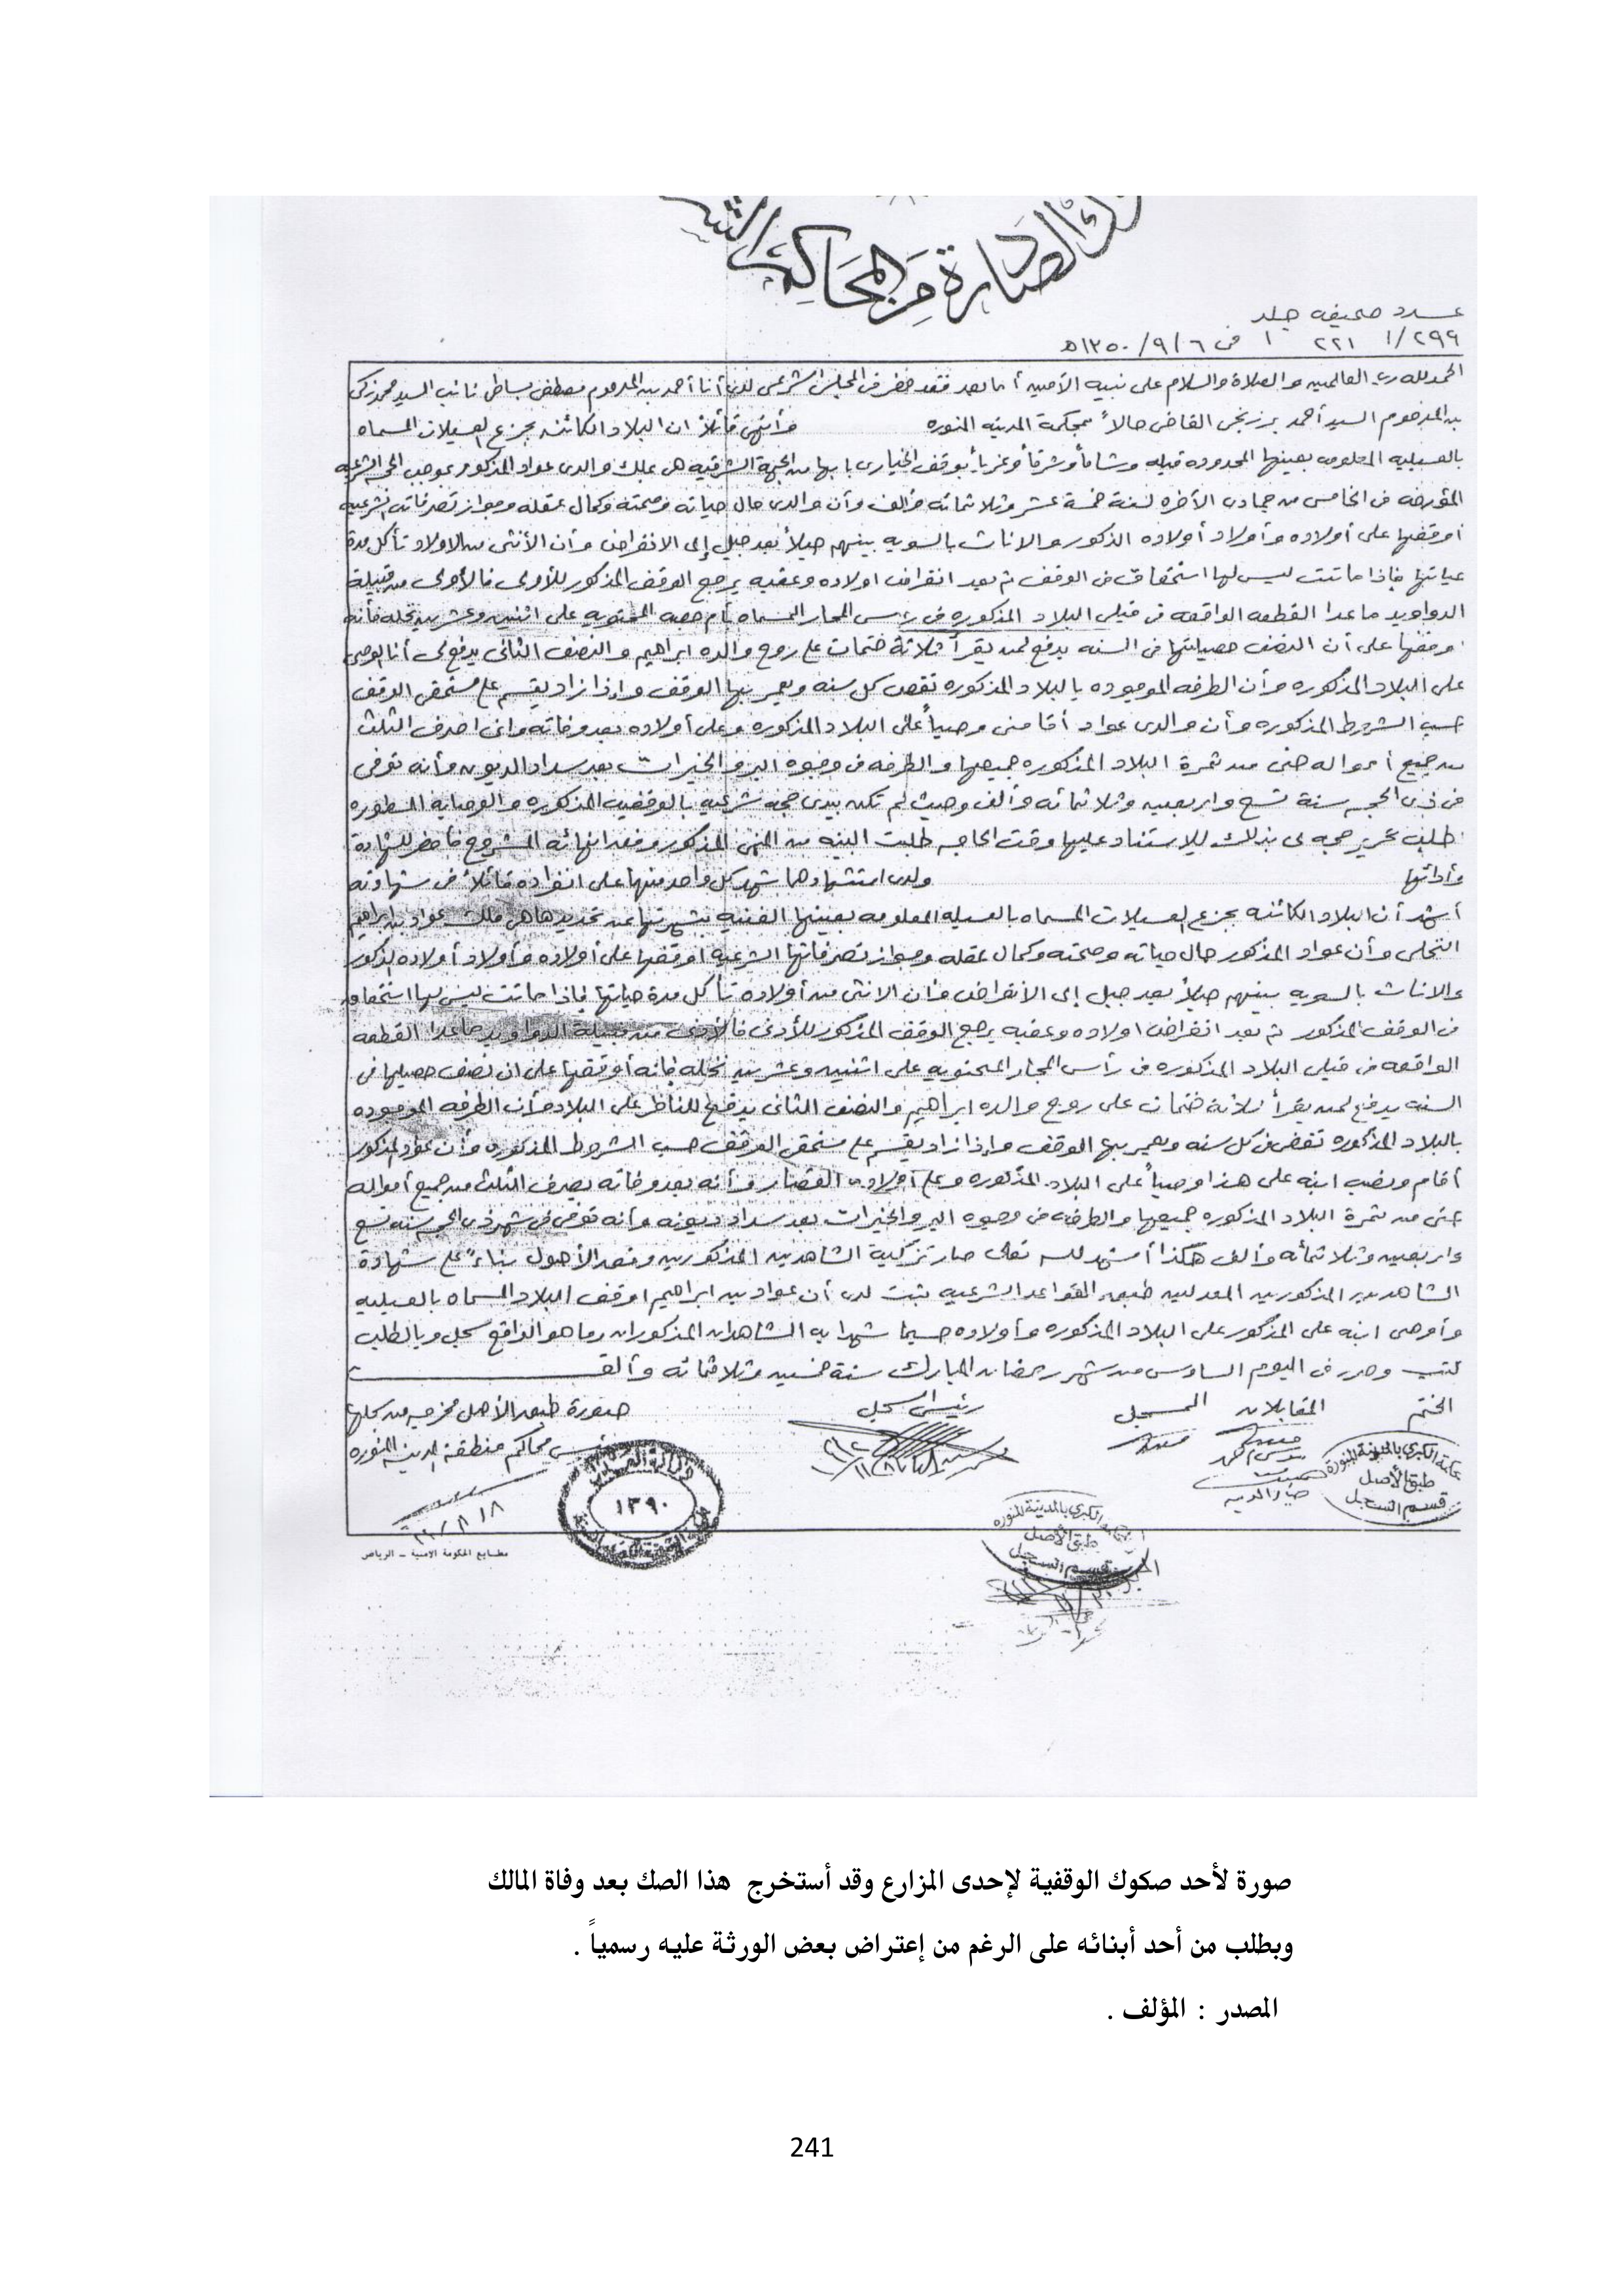 الصادرة من المحاكم
عدد صحيفه جلد
٢٩٩/١ ٢٢١ ١ في ٩/٦/١٣٥٠هـ
الحمد لله رب العالمين والصلاة والسلام على نبيه الأمين أما بعد فقد حضر في المجلس الشرعي لدي أنا أحمد بن المرحوم مصطفى بساطي نائب السيد محمد زكي
بن المرحوم السيد أحمد برزنجي القاضي حالاً بمحكمة المدينه المنوره وأنهى قائلاً ان البلاد الكائنه بجزع العسيلات المسماه
بالعسيليه المعلومه بعينها المحدوده قبله وشاماً وشرقاً وغرباً بوقف الخياري بابها من الجهة الشرقيه هي ملك والدي عواد المذكور بموجب الحجه الشرعيه
المؤرخه في الخامس من جمادى الآخره لسنة خمسة عشر وثلاثمائه وألف وأن والدي حال حياته وصحته وكمال عقله وجواز تصرفاته الشرعيه
أوقفها على أولاده وأولاد أولاده الذكور والاناث بالسويه بينهم جيلاً بعد جيل إلى الانقراض وأن الأنثى من الاولاد تأكل مدة
حياتها فإذا ماتت ليس لها استحقاق في الوقف ثم بعد انقراض اولاده وعقبه يرجع الوقف المذكور للأدنى فالأدنى من قبيلة
الدواويد ماعدا القطعه الواقعه في قبلي البلاد المذكوره في رأس المجار المسماه المحتويه على اثنين وعشرين نخله فأنه
اوقفها على أن النصف حصيلتها في السنه يدفع لمن يقرأ ثلاثة ختمات على روح والده ابراهيم والنصف الثاني يدفع لي أنا الوصي
على البلاد المذكوره وأن الطرفه الموجوده بالبلاد المذكوره تقص كل سنه ويعمر بها الوقف وإذا زاد يقسم على مستحقي الوقف
حسب الشروط المذكوره وأن والدي عواد أقامني وصياً على البلاد المذكوره وعلى أولاده بعد وفاته واني اصرف الثلث
من جميع أمواله حتى من ثمرة البلاد المذكوره جميعها والطرفه في وجوه البر والخيرات بعد سداد الديون وأنه توفى
في ذي الحجه سنة تسع واربعين وثلاثمائه وألف وحيث لم تكن بيدي حجه شرعيه بالوقفيه المذكوره والوصايه المسطوره
اطلب تحرير حجه لي بذلك للاستناد عليها وقت الحاجه طلبت البينه من المنهي المذكور وفقد انهائه المشروح فأحضر للشهادة
وأدائها ولدى استشهادهما شهد كل واحد منهما على انفراده قائلاً في شهادته
أشهد أن البلاد الكائنه بجزع العسيلات المسماه بالعسيله المعلومه بعينها الغنيه بشهرتها عن تحديدها هي ملك عواد بن ابراهيم
وأن عواد المذكور حال حياته وصحته وكمال عقله وجواز تصرفاتها الشرعيه أوقفها على أولاده وأولاد أولاده الذكور
والاناث بالسويه بينهم جيلاً بعد جيل إلى الانقراض وأن الانثى من أولاده تأكل مدة حياتها فإذا ماتت ليس لها استحقاق
في الوقف المذكور ثم بعد انقراض اولاده وعقبه يرجع الوقف المذكور للأدنى فالأدنى من قبيلة الدواويد ماعدا القطعه
الواقعه في قبلي البلاد المذكوره في رأس المجار المحتويه على اثنين وعشرين نخله فإنه أوقفها على ان نصف حصيلها في
السنه يدفع لمن يقرأ ثلاثة ختمات على روح والده ابراهيم والنصف الثاني يدفع للناظر على البلاد وأن الطرفه الموجوده
بالبلاد المذكوره تقص في كل سنه ويعمر بها الوقف وإذا زاد يقسم على مستحقي الوقف حسب الشروط المذكوره وأن عواد المذكور
أقام ونصب ابنه على هذا وصياً على البلاد المذكوره وعلى أولاده القصار وأنه بعد وفاته يصرف الثلث من جميع أمواله
حتى من ثمرة البلاد المذكوره جميعها والطرفه في وجوه البر والخيرات بعد سداد ديونه وأنه توفى في شهر ذي الحجه سنه تسع
واربعين وثلاثمأئه وألف هكذا أشهد لله تعالى صار تزكية الشاهدين المذكورين وفقد الأصول بناءً على شهادة
الشاهدين المذكورين المعدلين طبق القواعد الشرعيه ثبت لدي أن عواد بن ابراهيم اوقف البلاد المسماه بالعسيليه
وأوصى ابنه على المذكور على البلاد المذكوره وأولاده حسبما شهدا به الشاهدان المذكوران وما هو الواقع سجل وبالطلب
كتب وحرر في اليوم السادس من شهر رمضان المبارك سنة خمسين وثلاثمائه وألف
الختم المقابلان المسجل رئيس السجل صورة طبق الأصل مخرجه من سجلها
رئيس محاكم منطقة المدينه المنوره
المحكمة الكبرى بالمدينة المنورة
طبق الأصل
قسم السجل
١٣٩٠
المحكمة الكبرى بالمدينة المنوره
طبق الأصل
قسم السجل
مطابع الحكومة الامنية - الرياض
صورة لأحد صكوك الوقفية لإحدى المزارع وقد أستخرج هذا الصك بعد وفاة المالك
وبطلب من أحد أبنائه على الرغم من إعتراض بعض الورثة عليه رسمياً .
المصدر : المؤلف .
241